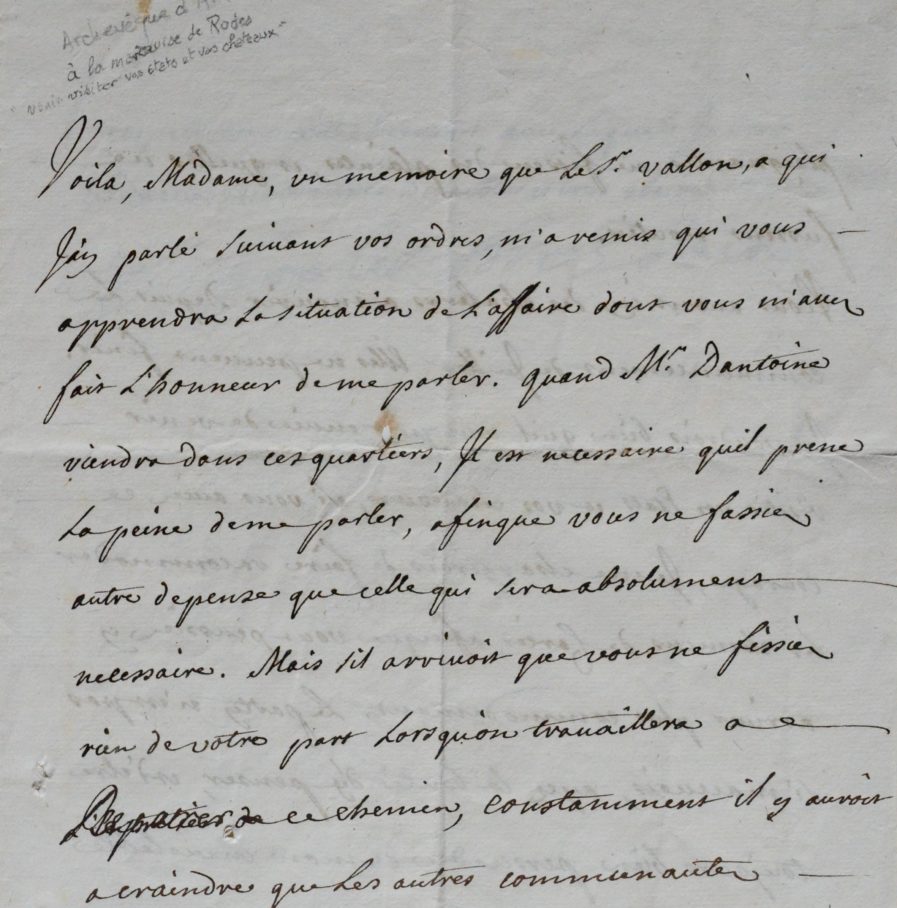 Archevêque d'
à la marquise de Rodes
" venir visiter vos états et vos chateaux "
Voila, Madame, un memoire que Le Sr. Vallon, a qui
J'ay parlé suivant vos ordres, m'a remis qui vous
apprendra La situation de L'affaire dont vous m'avez
fait L'honneur de me parler. quand Mr. Dantoine
viendra dans ces quartiers, Il est necessaire quil prene
La peine de me parler, afinque vous ne fassiez
autre depense que celle qui sera absolument
necessaire. Mais s'il arrivoit que vous ne fissiez
rien de votre part Lorsqu'on travaillera a
ce chemin, constamment il y auroit
a craindre que Les autres communautez